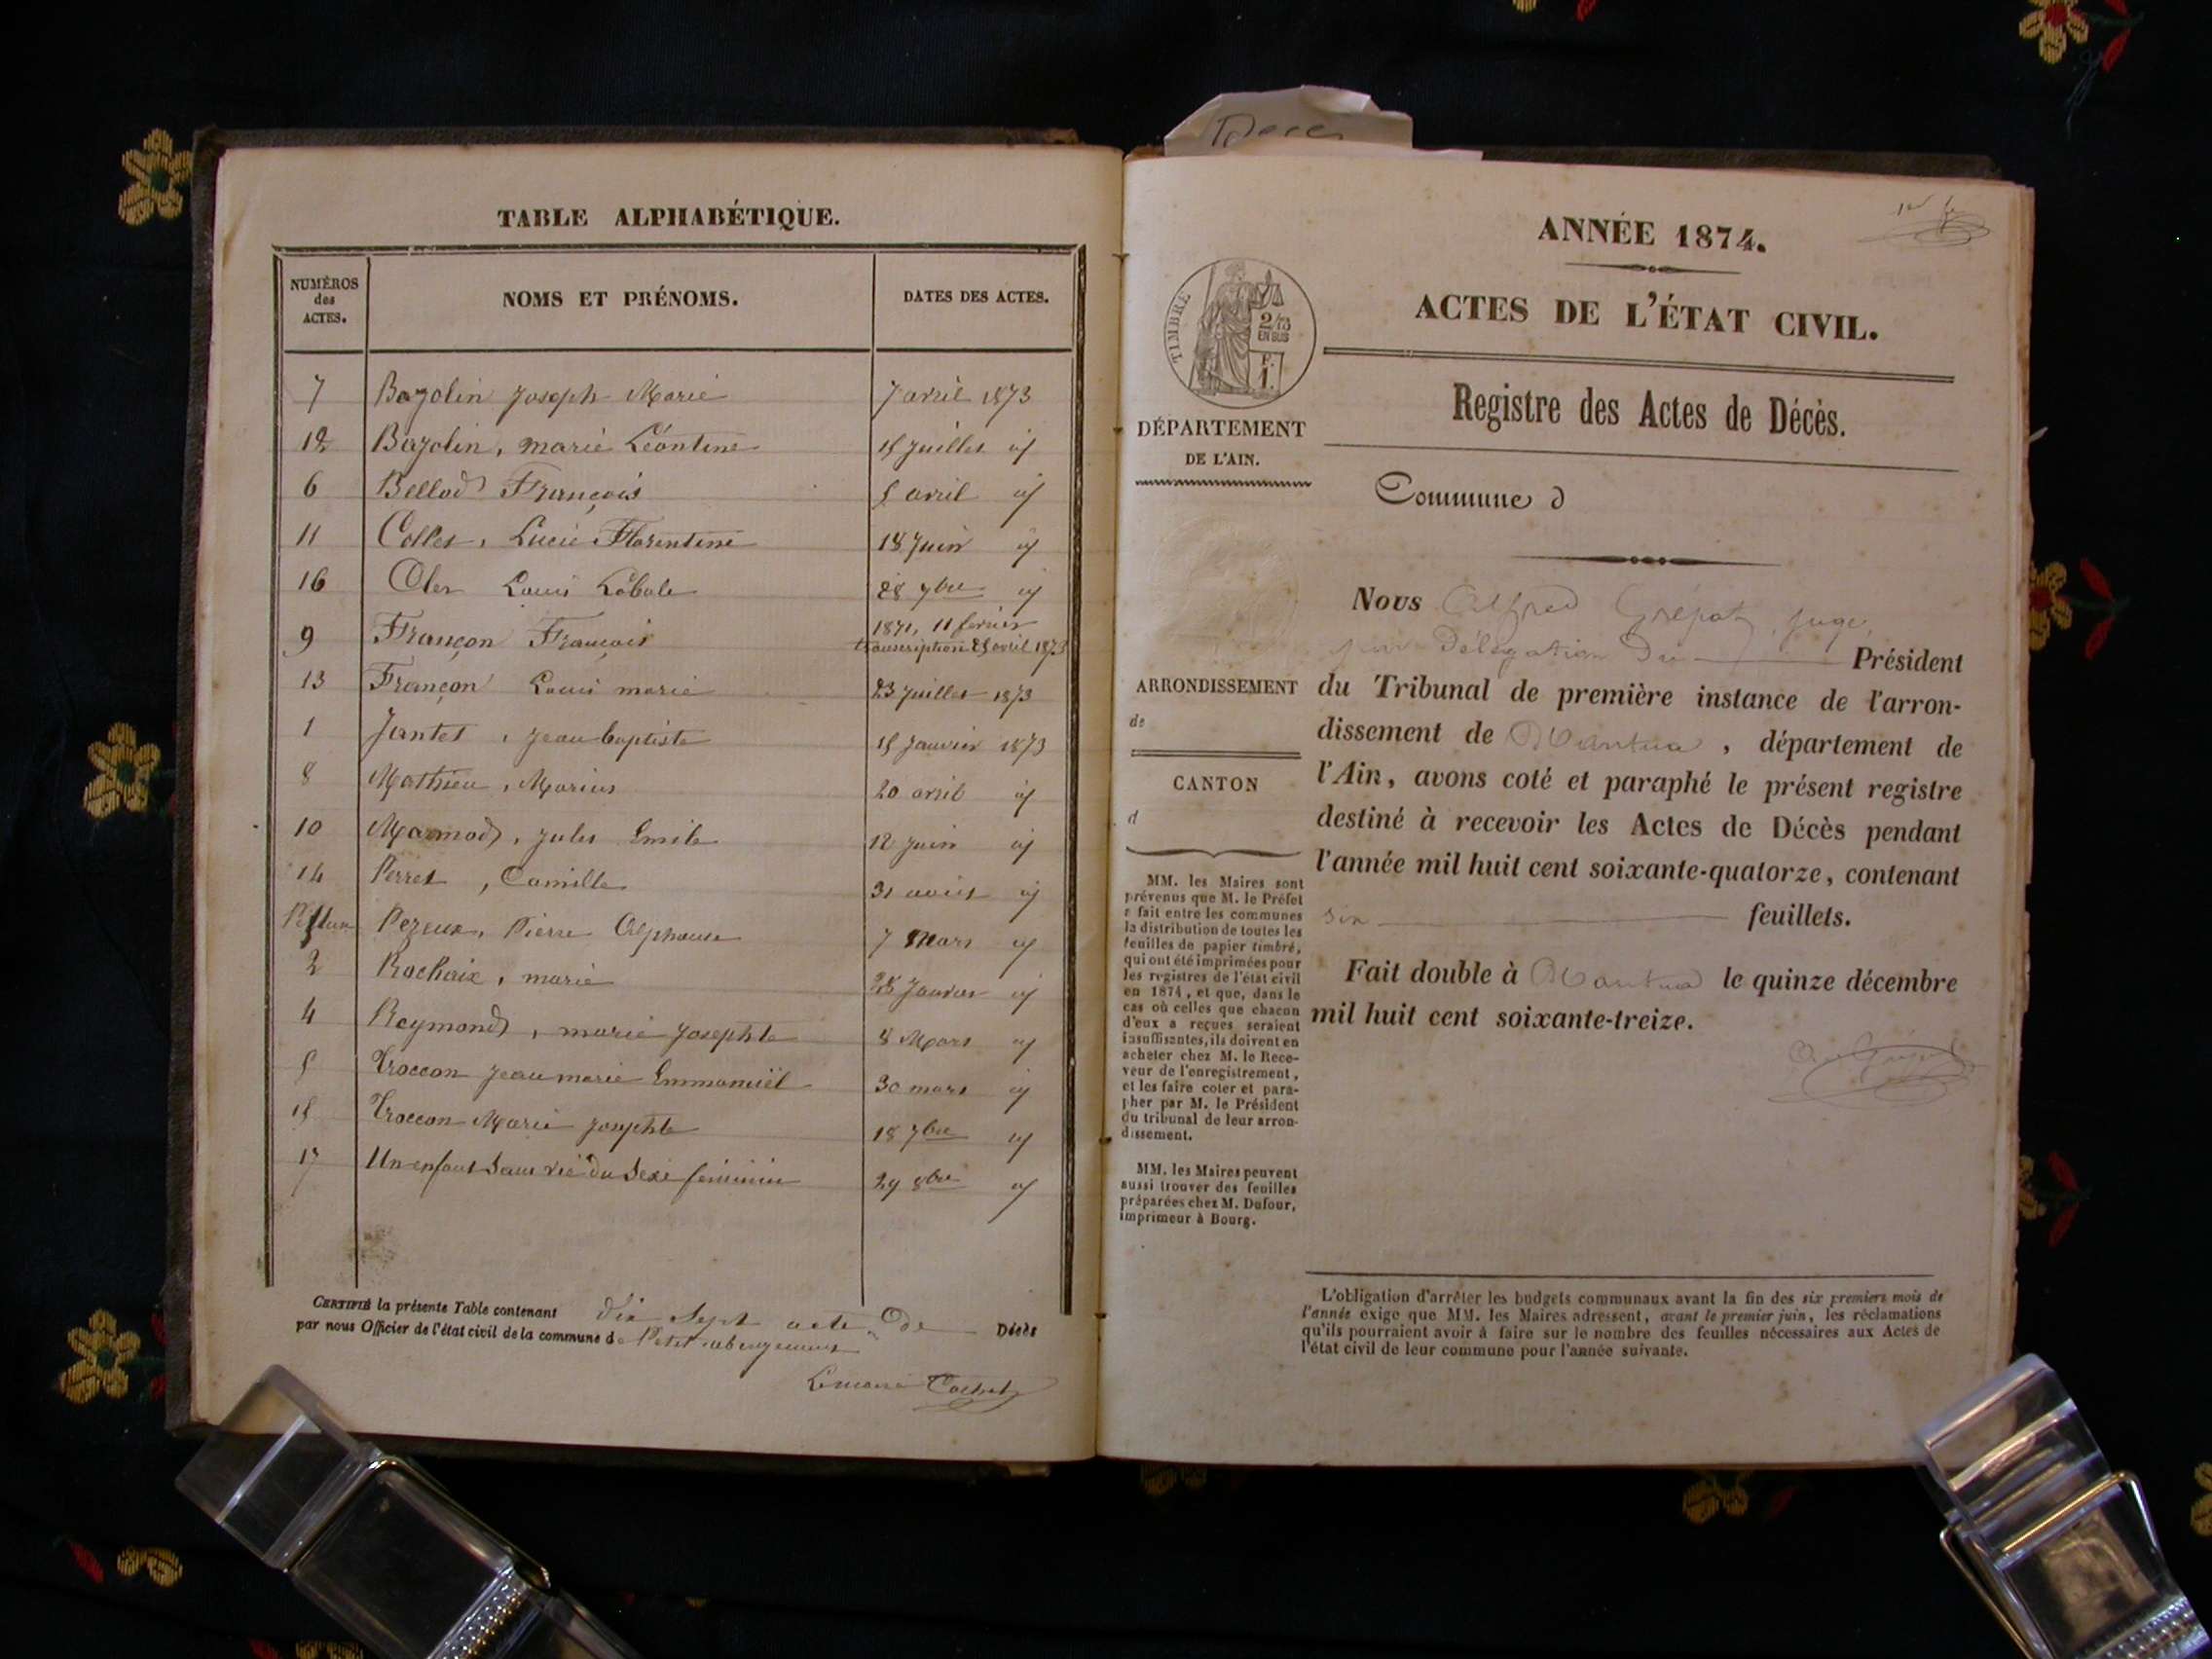 Décès
TABLE ALPHABÉTIQUE.
NUMÉROS des ACTES.
NOMS ET PRÉNOMS.
DATES DES ACTES.
7 Bazolin Joseph Marie 7 avril 1873
12 Bazolin, marie Léontine 15 juillet id
6 Bellod François 5 avril id
11 Collet, Lucie Florentine 18 Juin id
16 Louis 28 7bre id
9 Françon François 1871, 11 février transcription 25 avril 1873
13 Françon Louis marie 23 juillet 1873
1 Jantet, jean baptiste 15 Janvier 1873
8 Mathieu, Marius 20 avril id
10 Marmod, jules Emile 12 juin id
14 Perret, Camille 31 août id
Pezeux, Pierre Alphonse 7 Mars id
2 Rochaix, marie 28 Janvier id
4 Reymond, marie josephte 8 Mars id
5 Troccon jean marie Emmanuël 30 mars id
15 Troccon Marie josephte 18 7bre id
17 Un enfant sans vie du sexe féminin 29 8bre id
CERTIFIÉ la présente Table contenant dix sept acte de Décès
par nous Officier de l'état civil de la commune de Petit abergement
Le maire Tachet
ANNÉE 1874.
ACTES DE L'ÉTAT CIVIL.
TIMBRE
2/10
EN SUS
F.
1.
DÉPARTEMENT
DE L'AIN.
Registre des Actes de Décès.
Commune d
ARRONDISSEMENT
de
CANTON
d
MM. les Maires sont
prévenus que M. le Préfet
a fait entre les communes
la distribution de toutes les
feuilles de papier timbré,
qui ont été imprimées pour
les registres de l'état civil
en 1874, et que, dans le
cas où celles que chacun
d'eux a reçues seraient
insuffisantes, ils doivent en
acheter chez M. le Rece-
veur de l'enregistrement,
et les faire coter et para-
pher par M. le Président
du tribunal de leur arron-
dissement.
MM. les Maires peuvent
aussi trouver des feuilles
préparées chez M. Dufour,
imprimeur à Bourg.
Nous Alfred Grépat, juge,
par Délégation Du Président
du Tribunal de première instance de l'arron-
dissement de Nantua, département de
l'Ain, avons coté et paraphé le présent registre
destiné à recevoir les Actes de Décès pendant
l'année mil huit cent soixante-quatorze, contenant
six feuillets.
Fait double à Nantua le quinze décembre
mil huit cent soixante-treize.
L'obligation d'arrêter les budgets communaux avant la fin des six premiers mois de
l'année exige que MM. les Maires adressent, avant le premier juin, les réclamations
qu'ils pourraient avoir à faire sur le nombre des feuilles nécessaires aux Actes de
l'état civil de leur commune pour l'année suivante.